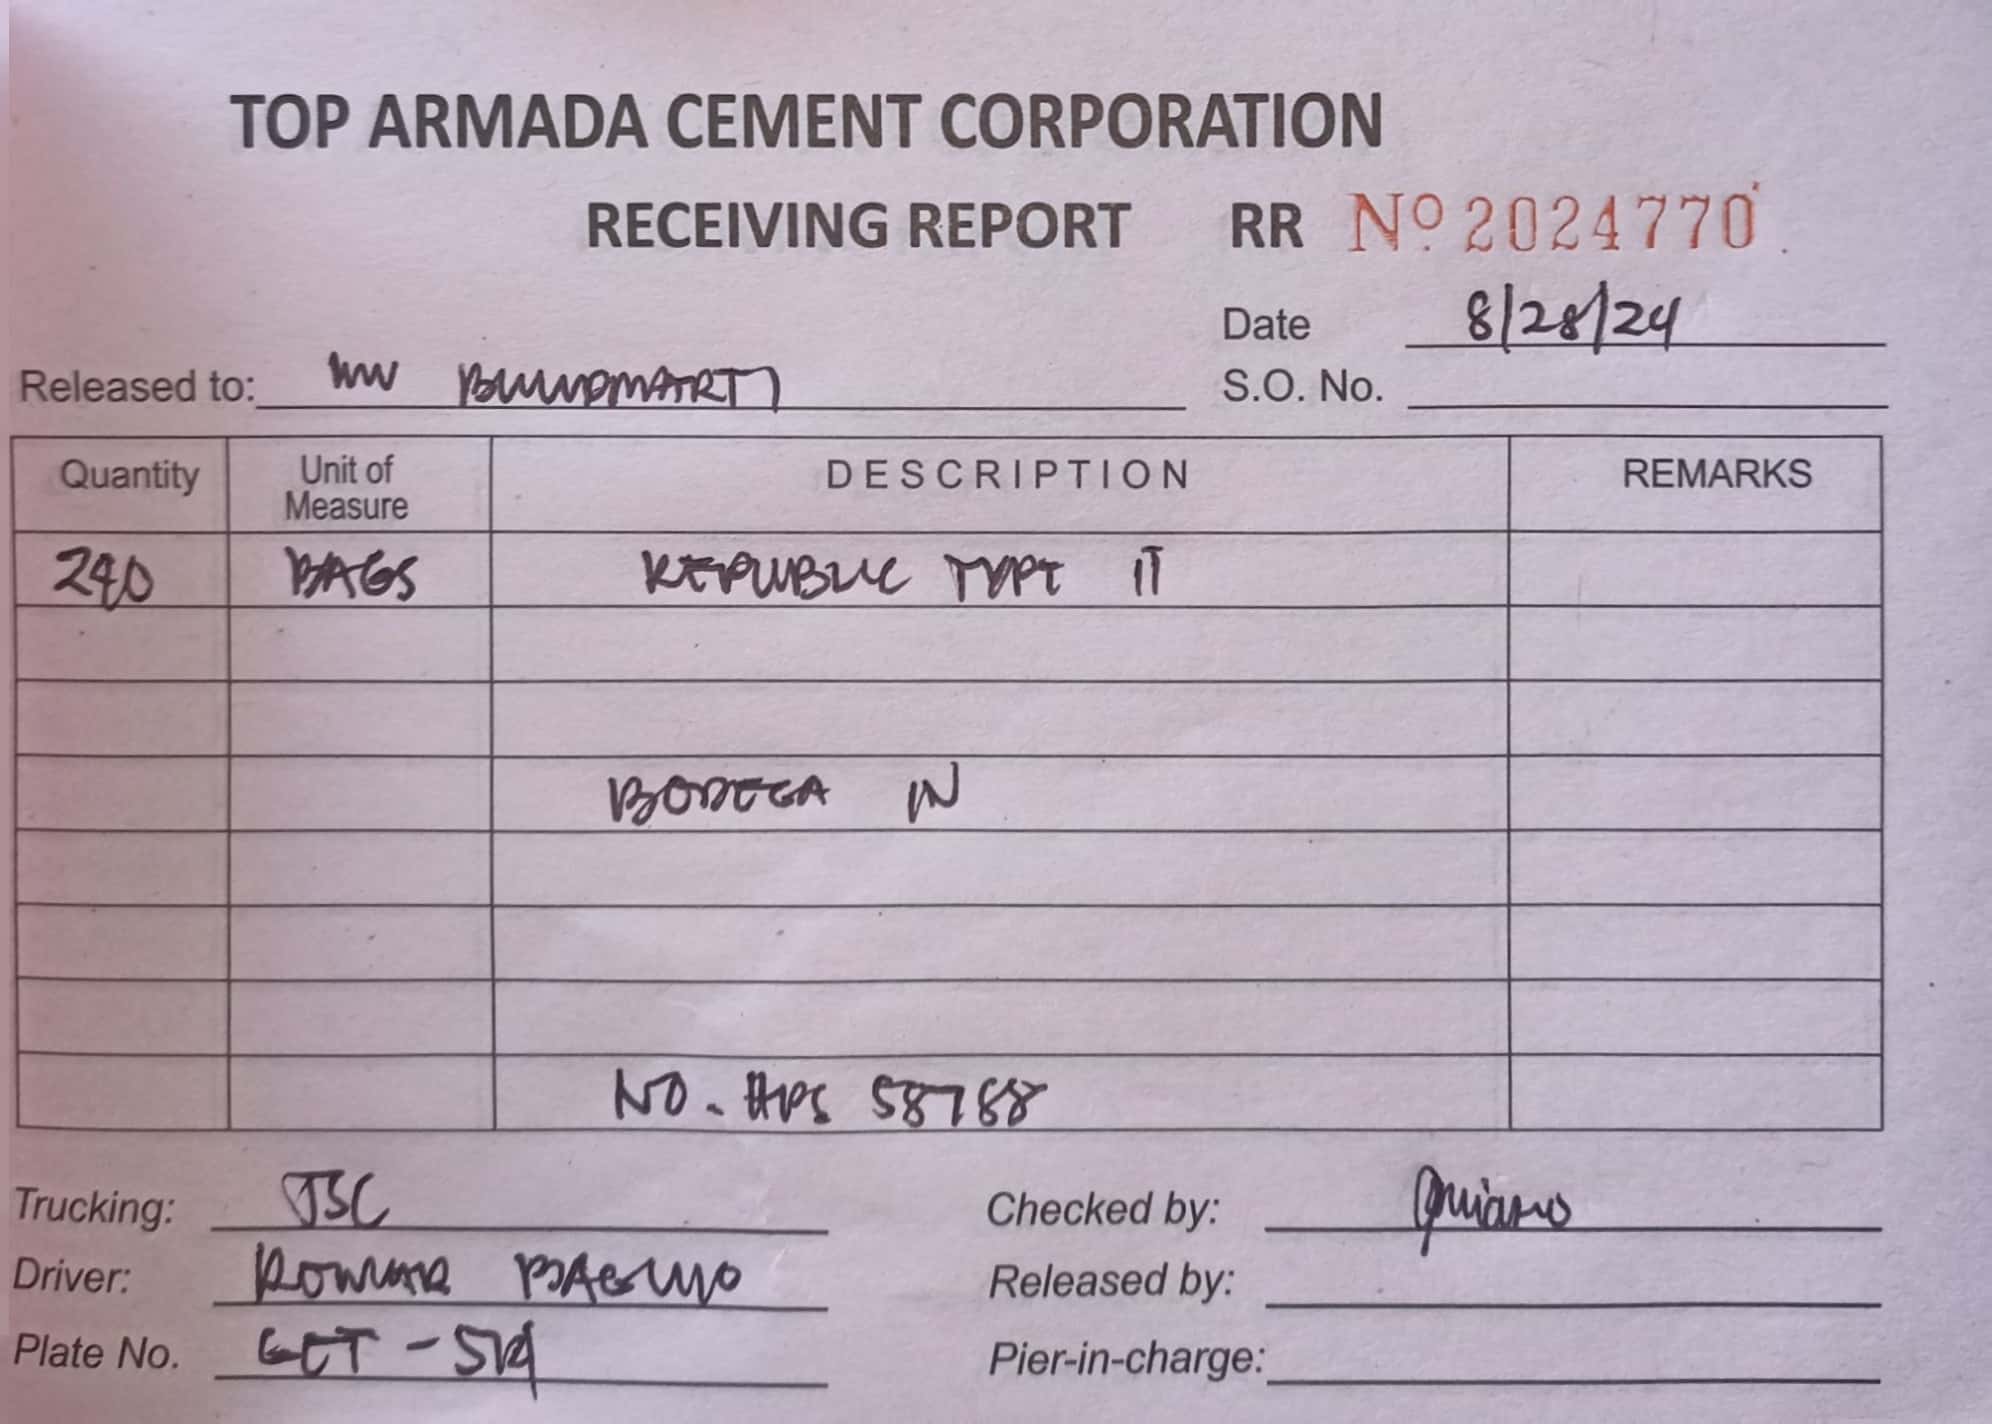 TOP ARMADA CEMENT CORPORATION
RECEIVING REPORT RR Nº 2024770
Date 8/28/24
Released to: BUILDMART
S.O. No.
Quantity Unit of Measure DESCRIPTION REMARKS
240 BAGS REPUBLIC TYPE 1T
BODEGA IN
NO. HPS 58788
Trucking: JSC
Checked by:
Driver: ROMAR BAGUIO
Released by:
Plate No.
Pier-in-charge: